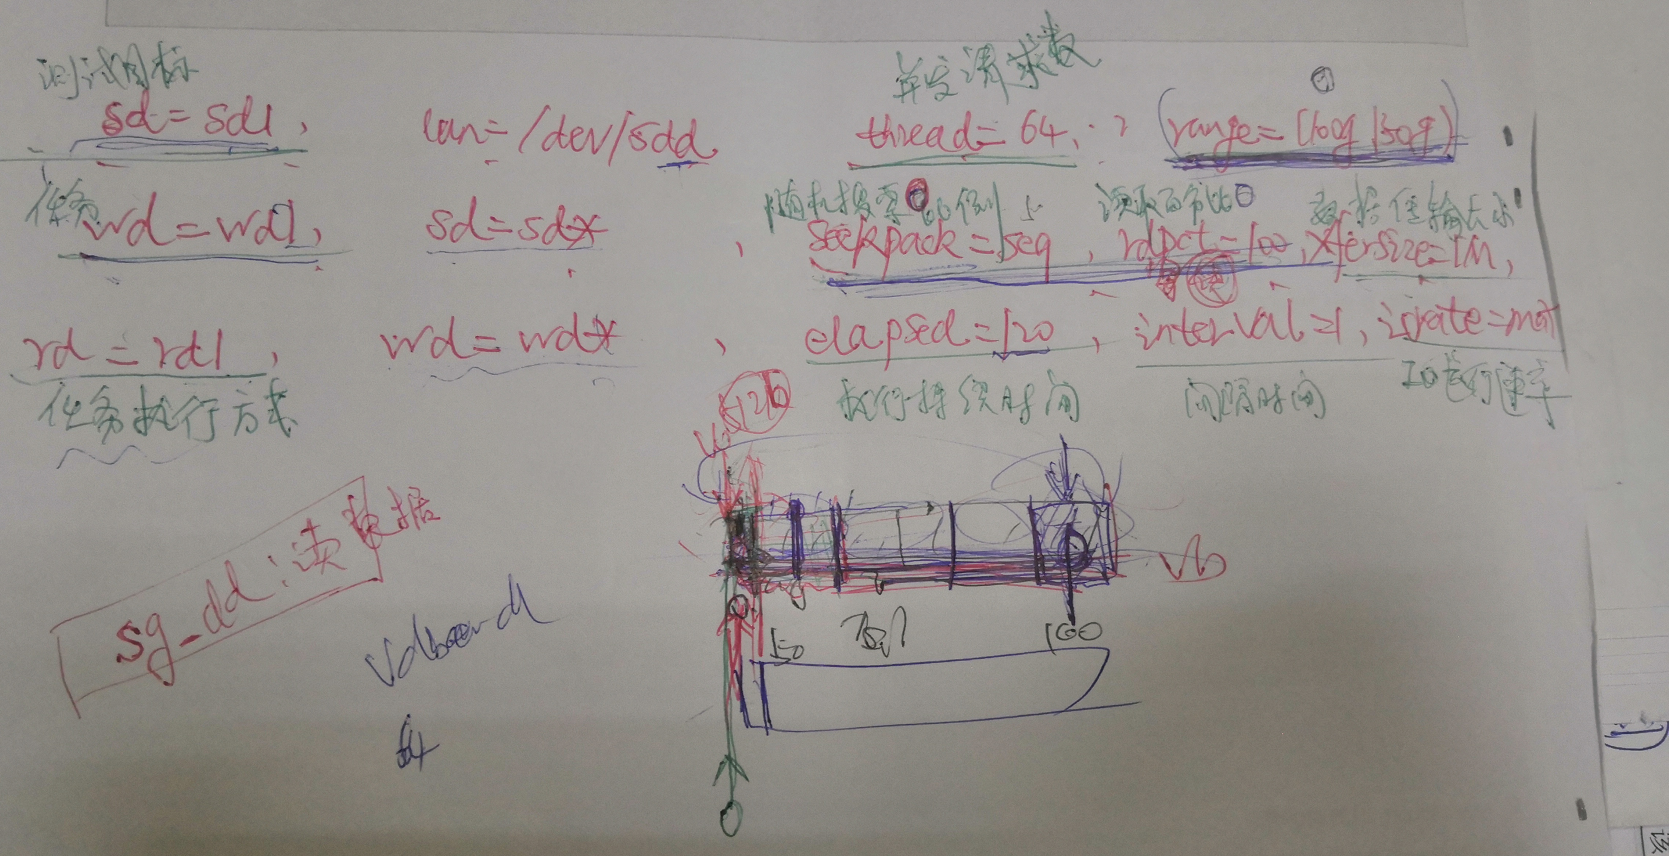 测试目标 并发请求数
sd=sd1, lun=/dev/sdd thread=64, (range=(100g,150g)
任务 随机搜索的比例 读取百分比 数据传输大小
wd=wd1, sd=sd*, seekpack=seq, rdpct=100, xfersize=1M,
rd=rd1, wd=wd*, elapsed=120, interval=1, iorate=max
任务执行方式 执行持续时间 间隔时间 IO执行速率
512b
sg_dd:读数据
150 100
64